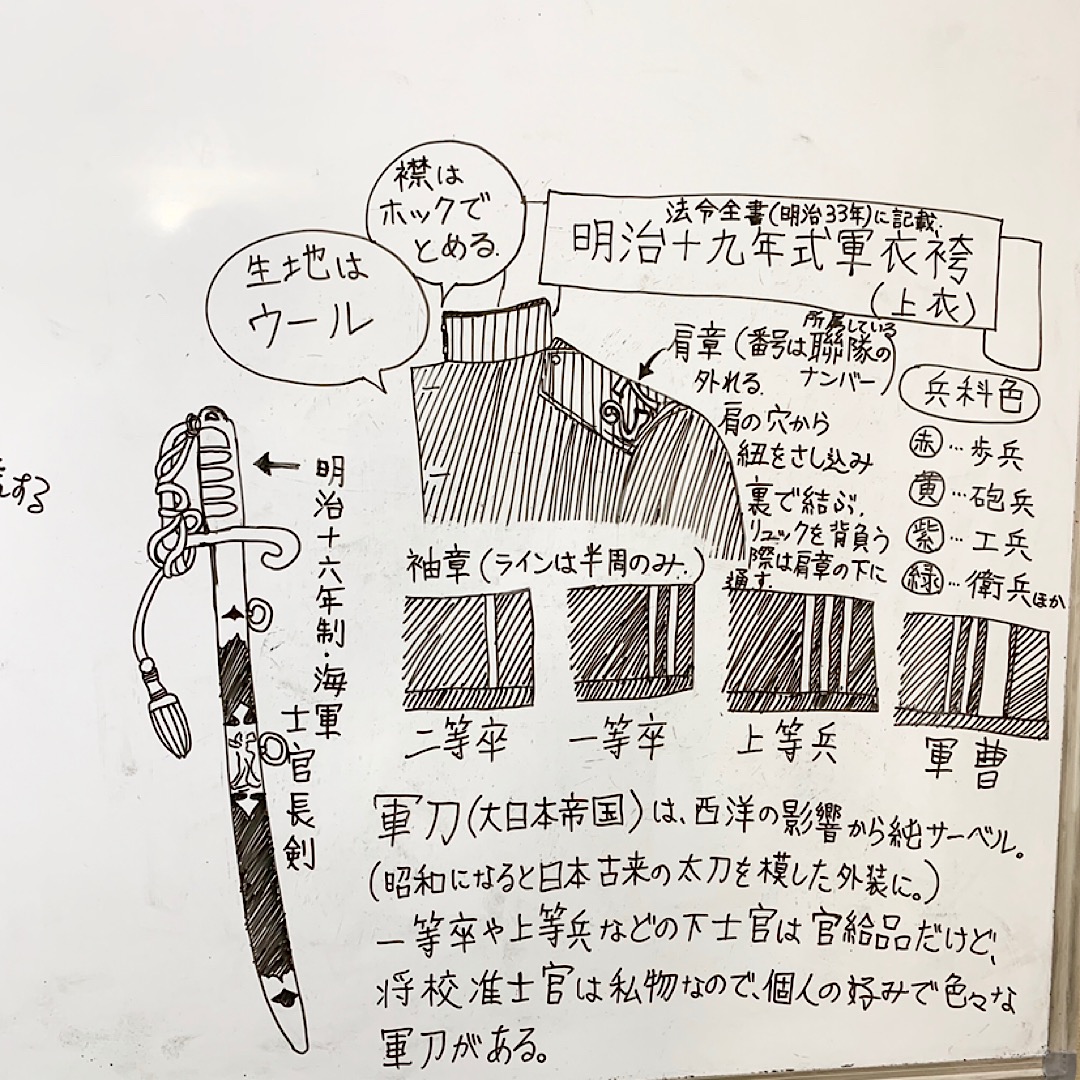 襟は
ホックで
とめる.
生地は
ウール
法令全書(明治33年)に記載、
明治十九年式軍衣袴
(上衣)
肩章(番号は所属している聯隊のナンバー)
外れる.
肩の穴から
紐をさし込み
裏で結ぶ.
リュックを背負う
際は肩章の下に
通す.
兵科色
赤…歩兵
黄…砲兵
紫…工兵
緑…衛兵ほか
する
明治十六年制・海軍
士官長剣
袖章(ラインは半周のみ.)
二等卒
一等卒
上等兵
軍曹
軍刀(大日本帝国)は、西洋の影響から純サーベル。
(昭和になると日本古来の太刀を模した外装に。)
一等卒や上等兵などの下士官は官給品だけど、
将校准士官は私物なので、個人の好みで色々な
軍刀がある。